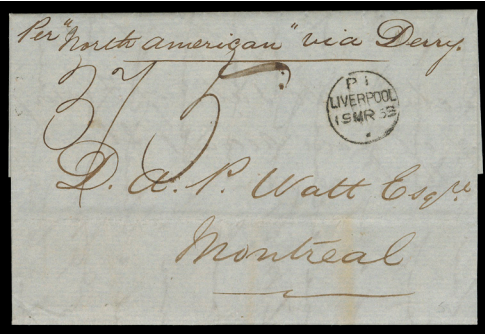 Per "North American" via Derry.
3/5
P 1
LIVERPOOL
19 MR 63
D. A. P. Watt Esqre
Montreal